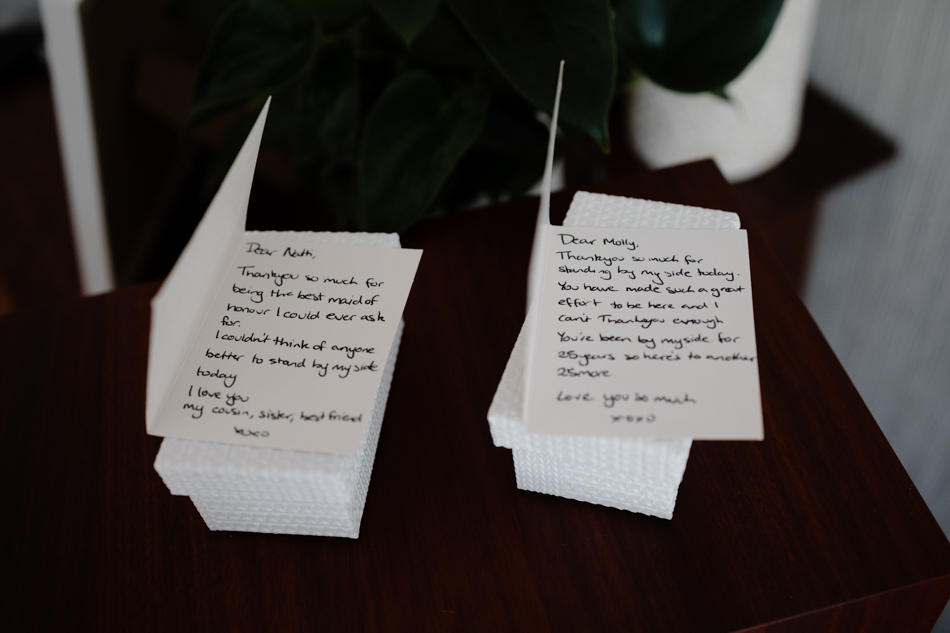 Dear Natti,
Thankyou so much for
being the best maid of
honour I could ever ask
for.
I couldn't think of anyone
better to stand by my side
today
I love you
my cousin, sister, best friend
xoxo
Dear Molly,
Thankyou so much for
standing by my side today.
You have made such a great
effort to be here and I
can't Thankyou enough
You're been by my side for
25 years so here's to another
25 more
Love you so much
xoxo